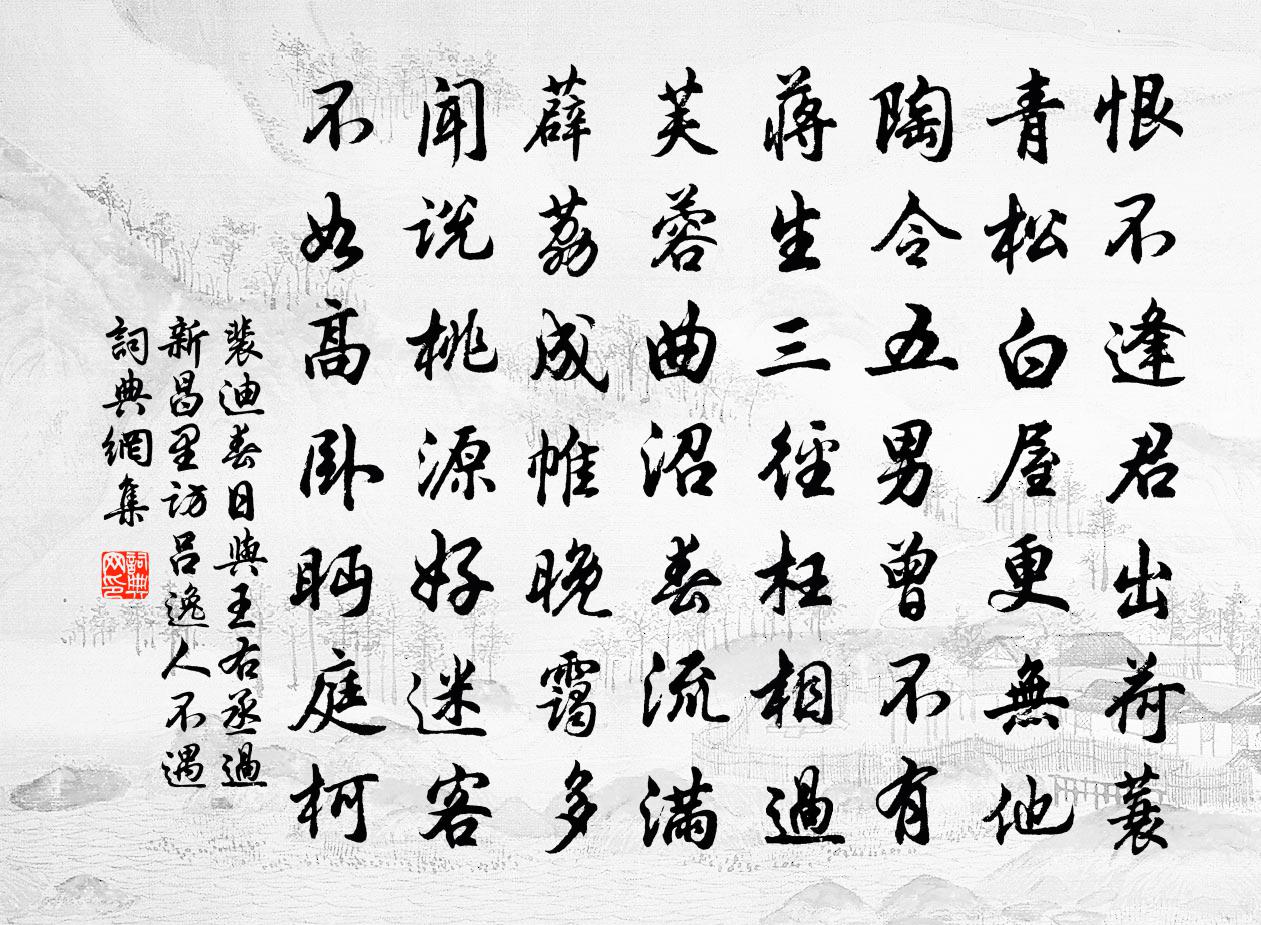 恨不逢君出荷蓑
青松白屋更無他
陶令五男曾不有
蔣生三徑枉相過
芙蓉曲沼春流滿
薜荔成帷晚靄多
聞説桃源好迷客
不如高卧眄庭柯
裴迪春日與王右丞過
新昌里訪呂逸人不遇
詞典網集
詞典网印